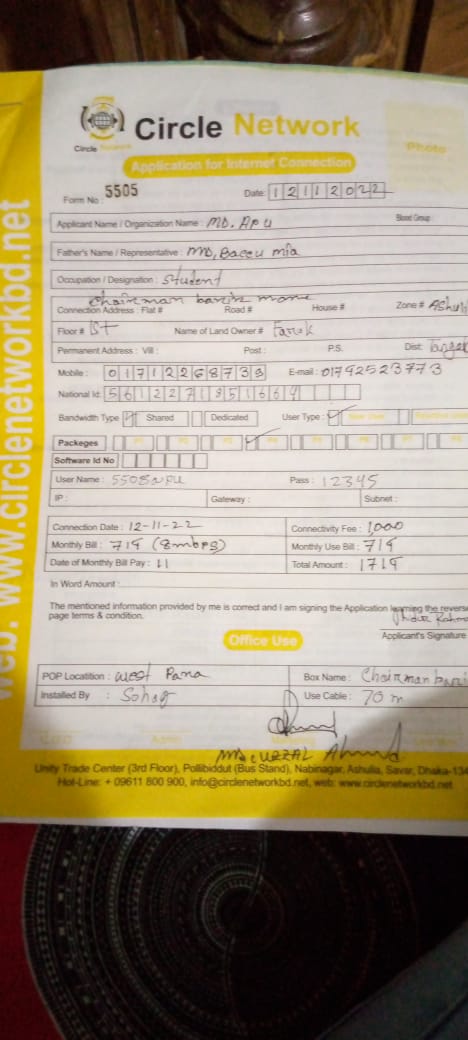 Circle Network
Circle Network
Application for Internet Connection
Photo
Form No : 5505
Date: 12112022
Applicant Name / Organization Name : MD. APU
Blood Group :
Father's Name / Representative : MD, Baccu mia
Occupation / Designation : Student
Chairman
Connection Address : Flat # Road # House # Zone #
Floor # 1st Name of Land Owner #
Permanent Address : Vill : Post : P.S. Dist:
Mobile : 01712268739 E-mail : 01792523773
National Id:
Bandwidth Type Shared Dedicated User Type :
Packeges
Software Id No
User Name : Pass : 12345
IP : Gateway : Subnet :
Connection Date : 12-11-22 Connectivity Fee : 1,000
Monthly Bill : 719 (8mbps) Monthly Use Bill : 719
Date of Monthly Bill Pay : 11 Total Amount : 1719
In Word Amount :
The mentioned information provided by me is correct and I am signing the Application learning the reverse
page terms & condition.
Applicant's Signature
Office Use
POP Locatition : west Para Box Name : Chairman bari
Installed By : Sohag Use Cable : 70 m
Unity Trade Center (3rd Floor), Pollibiddut (Bus Stand), Nabinagar, Ashulia, Savar, Dhaka-134
Hot-Line: + 09611 800 900, info@circlenetworkbd.net, web: www.circlenetworkbd.net
web: www.circlenetworkbd.net